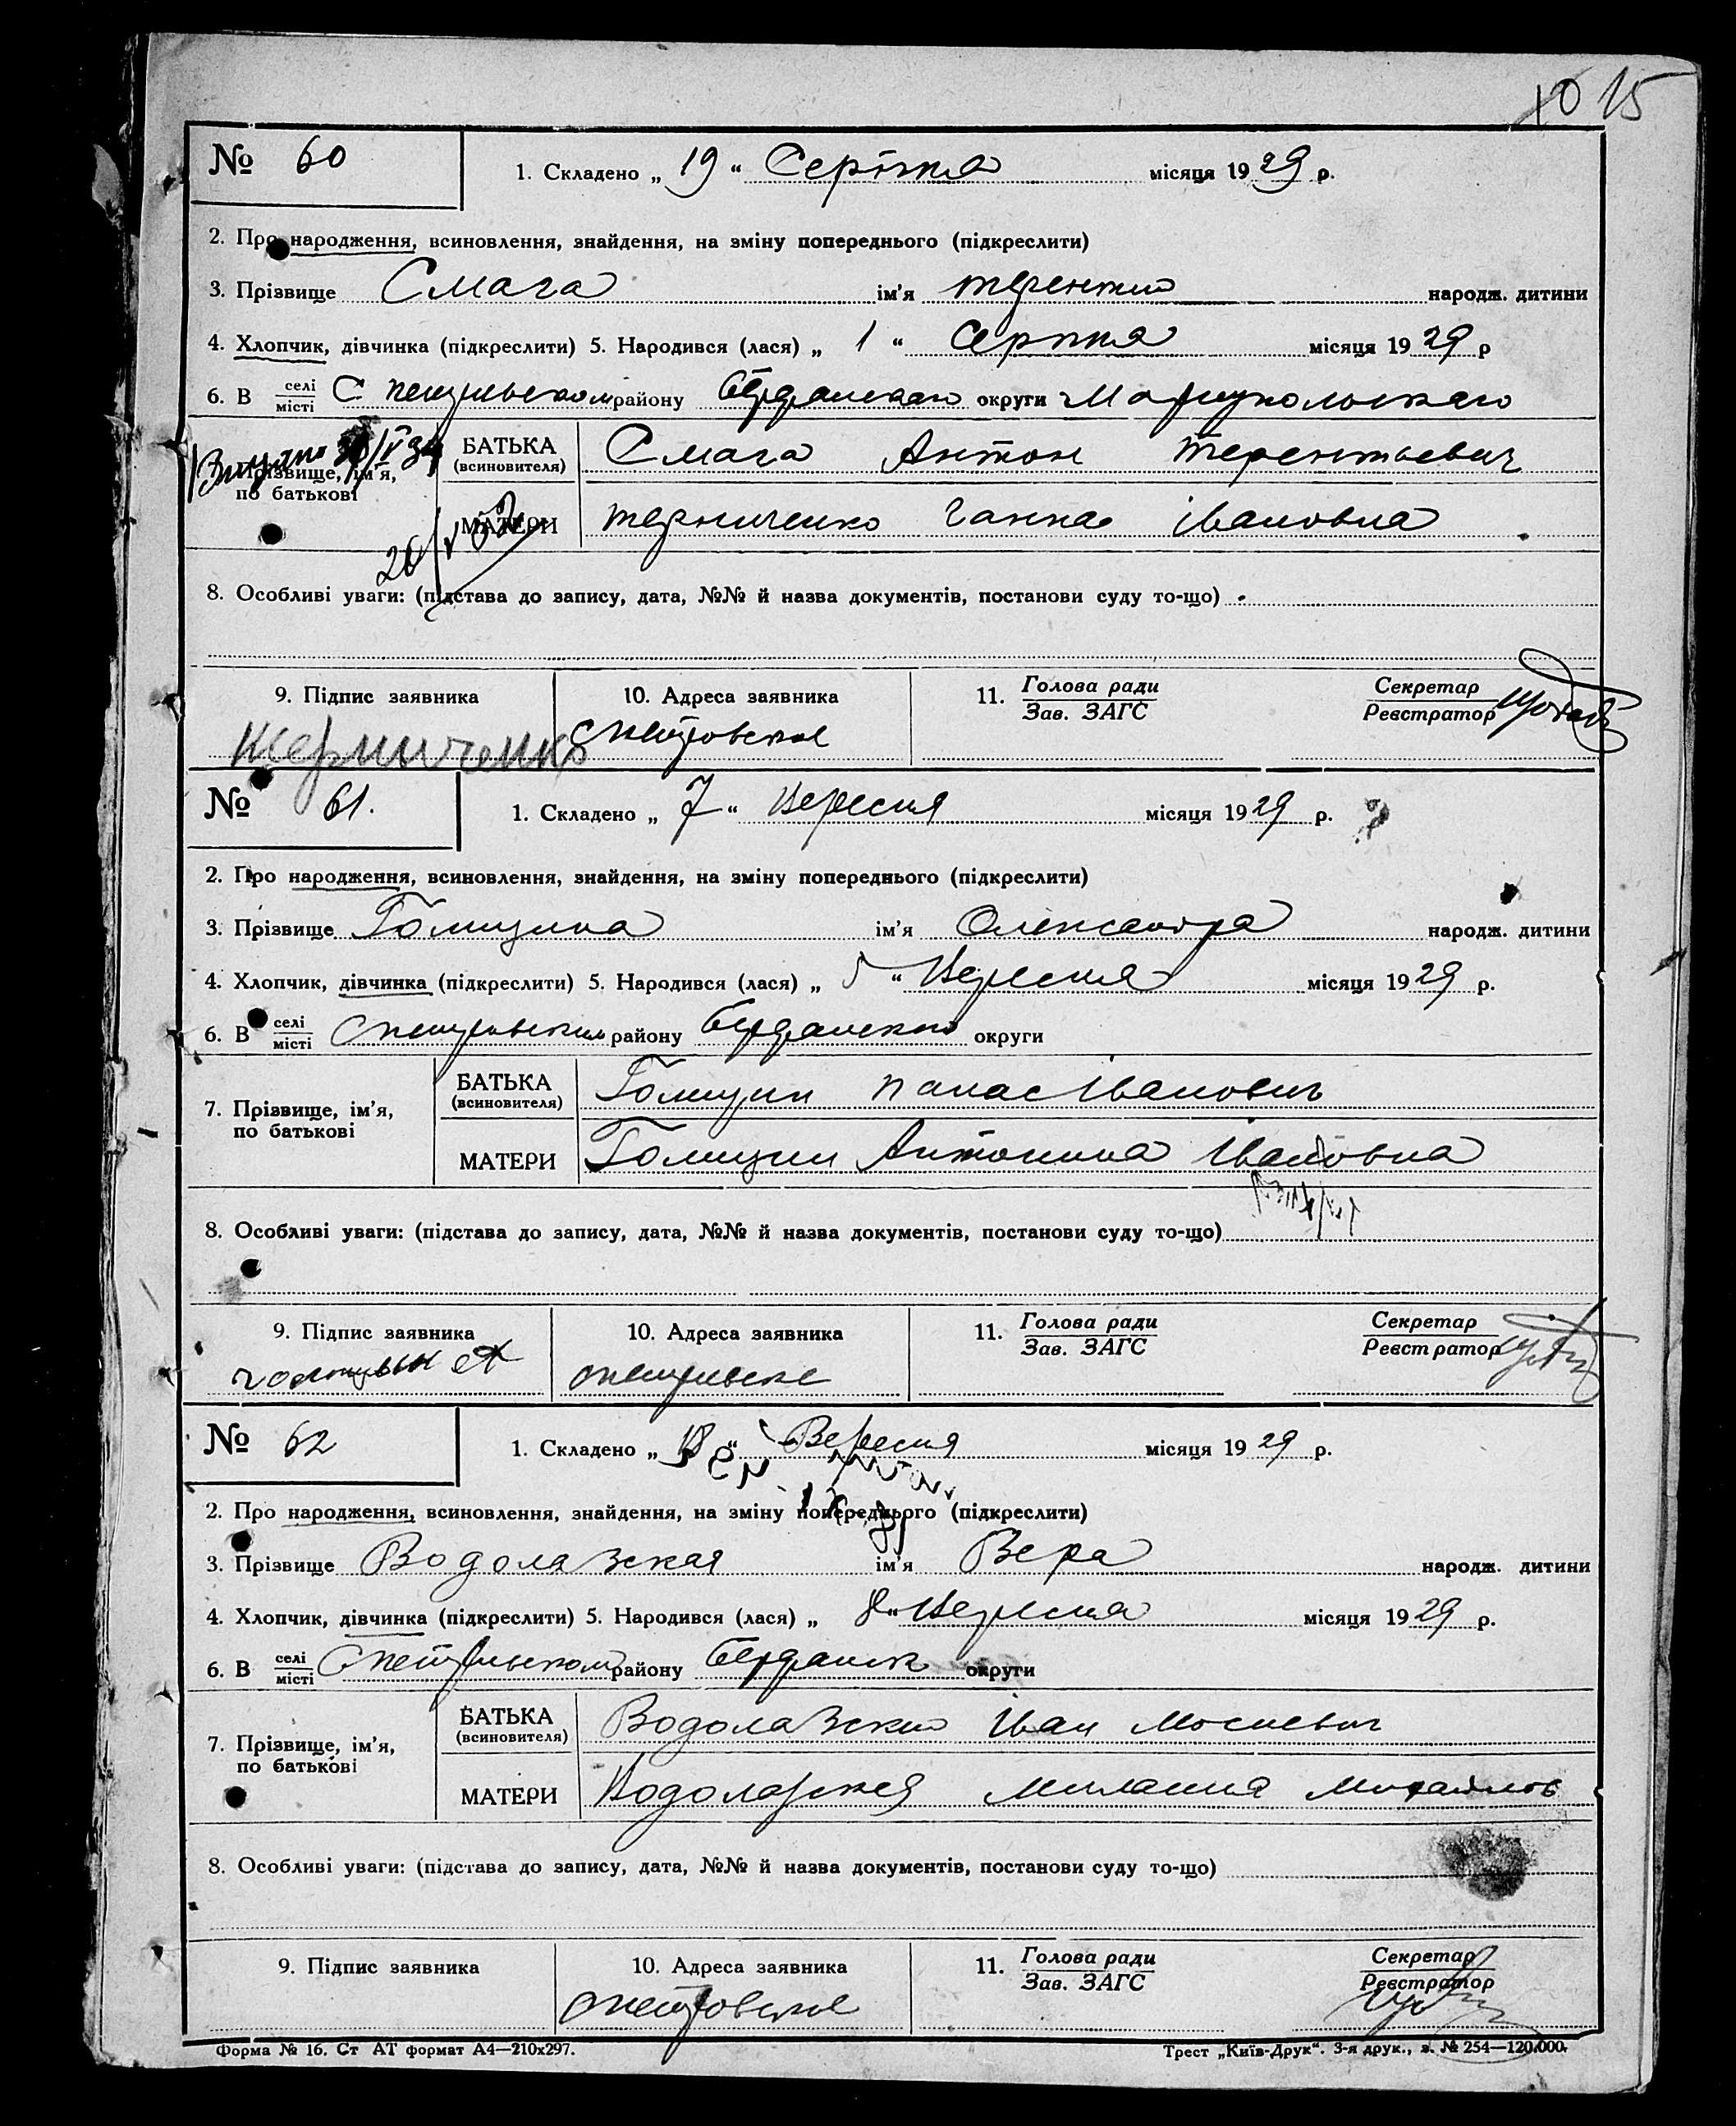 10 15
№ 60 1. Складено „ 19 “ Серпня місяця 1929 р.
2. Про народження, всиновлення, знайдення, на зміну попереднього (підкреслити)
3. Прізвище Смага ім'я терентий народж. дитини
4. Хлопчик, дівчинка (підкреслити) 5. Народився (лася) „ 1 “ Серпня місяця 1929 р
6. В селі місті С району округи Мариупольскаго
Прізвище, ім'я, по батькові
БАТЬКА (всиновителя) Смага Антон Терентьевич
МАТЕРИ терниченко Ганна Івановна
8. Особливі уваги: (підстава до запису, дата, №№ й назва документів, постанови суду то-що)
9. Підпис заявника 10. Адреса заявника 11. Голова ради Зав. ЗАГС Секретар Реєстратор
терниченко
№ 61. 1. Складено „ 7 “ Вересня місяця 1929 р.
2. Про народження, всиновлення, знайдення, на зміну попереднього (підкреслити)
3. Прізвище Голицина ім'я Олександра народж. дитини
4. Хлопчик, дівчинка (підкреслити) 5. Народився (лася) „ 5 “ Вересня місяця 1929 р.
6. В селі місті району округи
7. Прізвище, ім'я, по батькові
БАТЬКА (всиновителя) Голицин панас Іванович
МАТЕРИ Голицин Антонина Івановна
8. Особливі уваги: (підстава до запису, дата, №№ й назва документів, постанови суду то-що)
9. Підпис заявника 10. Адреса заявника 11. Голова ради Зав. ЗАГС Секретар Реєстратор
№ 62 1. Складено „ 18 “ Вересня місяця 1929 р.
2. Про народження, всиновлення, знайдення, на зміну попереднього (підкреслити)
3. Прізвище Водолазская ім'я Вера народж. дитини
4. Хлопчик, дівчинка (підкреслити) 5. Народився (лася) „ 8 “ Вересня місяця 1929 р.
6. В селі місті району Бердянск округи
7. Прізвище, ім'я, по батькові
БАТЬКА (всиновителя) Водолазский Іван Мосиевич
МАТЕРИ Милания Михайлов
8. Особливі уваги: (підстава до запису, дата, №№ й назва документів, постанови суду то-що)
9. Підпис заявника 10. Адреса заявника 11. Голова ради Зав. ЗАГС Секретар Реєстратор
Форма № 16. Ст АТ формат А4—210х297. Трест „Київ-Друк“. 3-я друк., з. № 254—120.000.